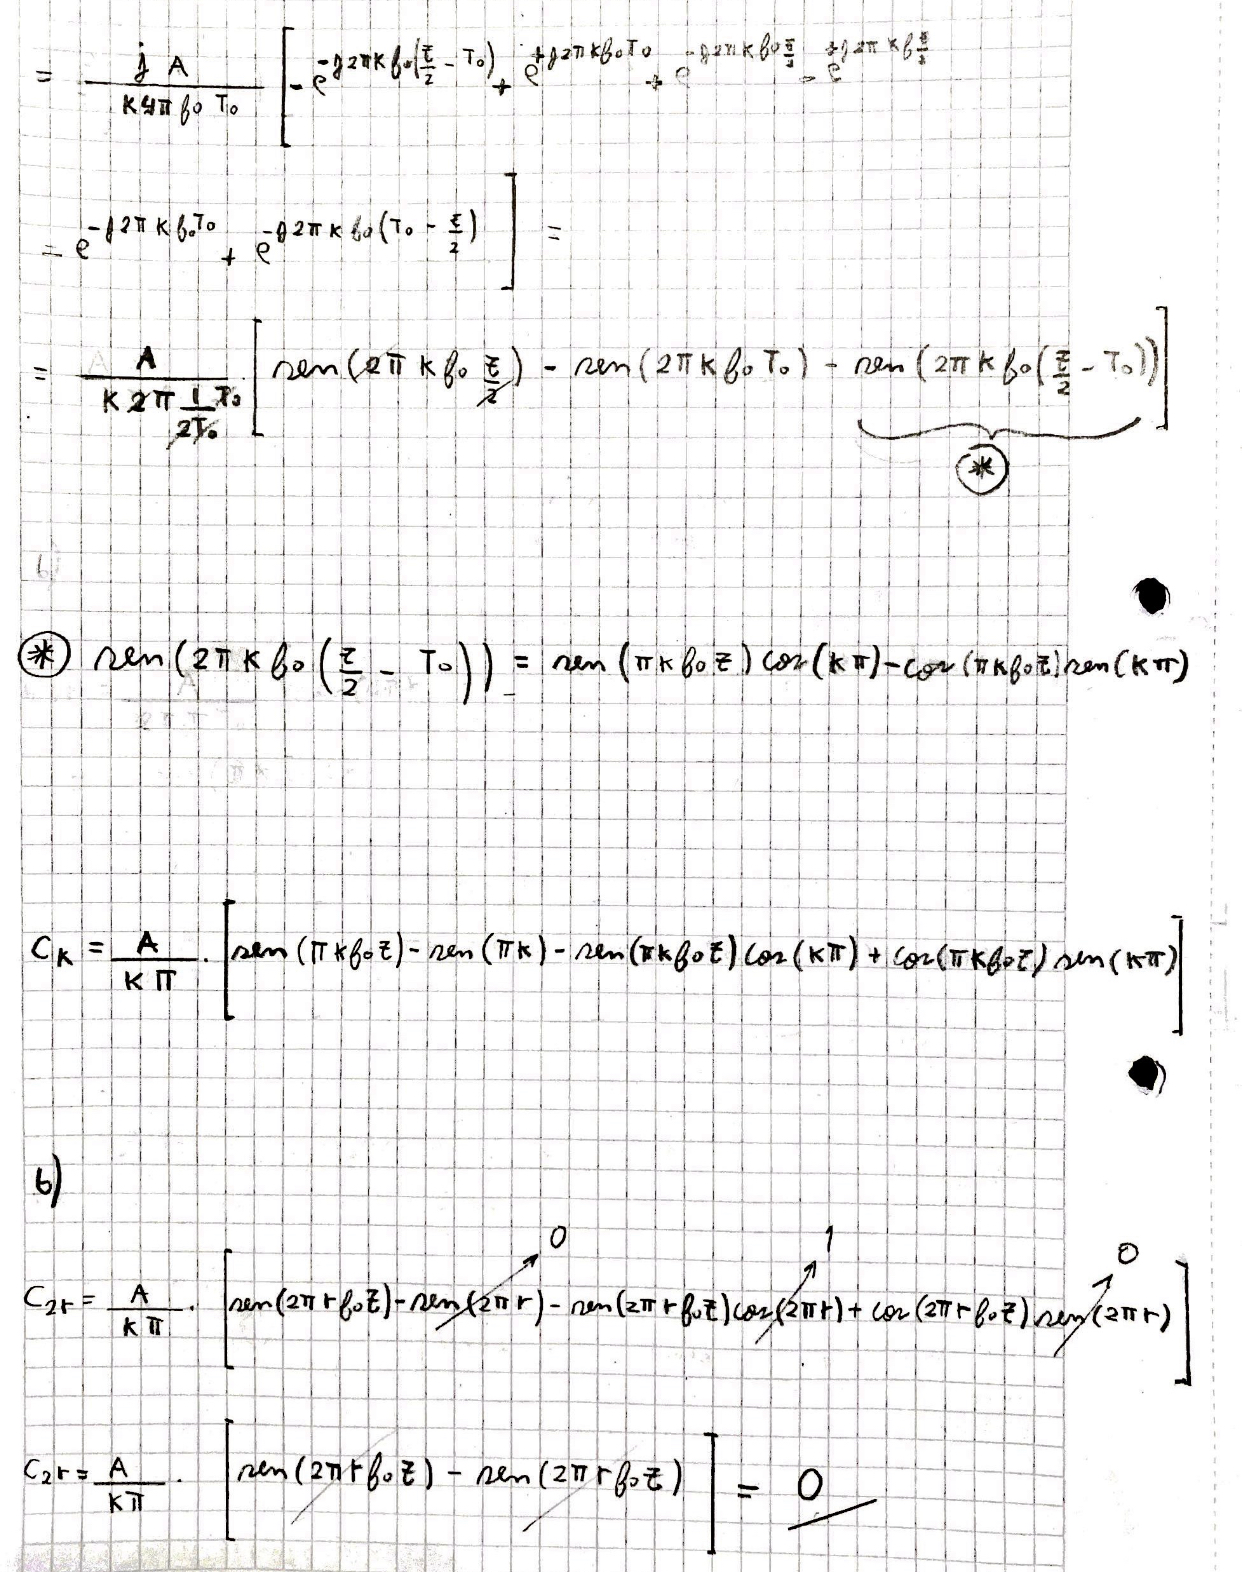 = \frac{j A}{K4π f₀ T₀} [ - e^{-j2πKf₀(\frac{τ}{2} - T₀)} + e^{+j2πKf₀T₀} + e^{-j2πKf₀\frac{τ}{2}} - e^{+j2πKf₀\frac{τ}{2}}
- e^{-j2πKf₀T₀} + e^{-j2πKf₀(T₀ - \frac{τ}{2})} ] =
= \frac{A}{K2π \frac{1}{2T₀} T₀} [ sen(2πKf₀\frac{τ}{2}) - sen(2πKf₀T₀) - sen(2πKf₀(\frac{τ}{2} - T₀)) ]
*
* sen(2πKf₀(\frac{τ}{2} - T₀)) = sen(πKf₀τ) cos(Kπ) - cos(πKf₀τ) sen(Kπ)
C_K = \frac{A}{Kπ} · [ sen(πKf₀τ) - sen(πK) - sen(πKf₀τ) cos(Kπ) + cos(πKf₀τ) sen(Kπ) ]
b)
0 1 0
C_{2r} = \frac{A}{Kπ} · [ sen(2πrf₀τ) - sen(2πr) - sen(2πrf₀τ) cos(2πr) + cos(2πrf₀τ) sen(2πr) ]
C_{2r} = \frac{A}{Kπ} · [ sen(2πrf₀τ) - sen(2πrf₀τ) ] = 0